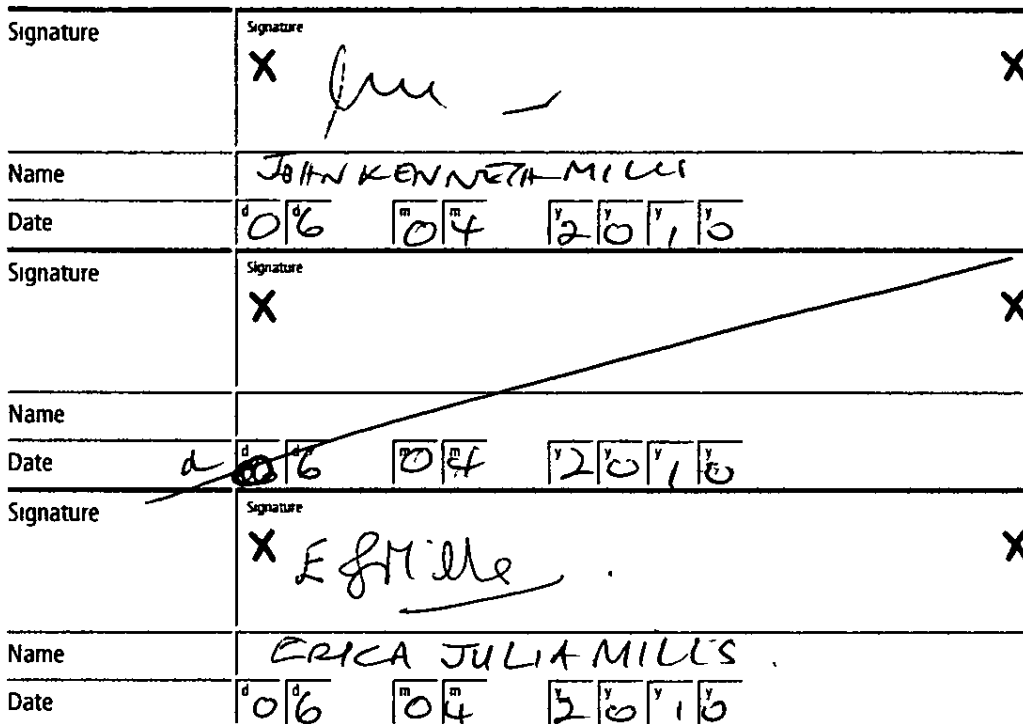 Signature Signature
X X
Name JOHN KENNETH MILLS
Date d0 d6 m0 m4 y2 y0 y1 y0
Signature Signature
X X
Name
Date d d d6 m0 m4 y2 y0 y1 y0
Signature Signature
X E J Mills X
Name ERICA JULIA MILLS .
Date d0 d6 m0 m4 y2 y0 y1 y0